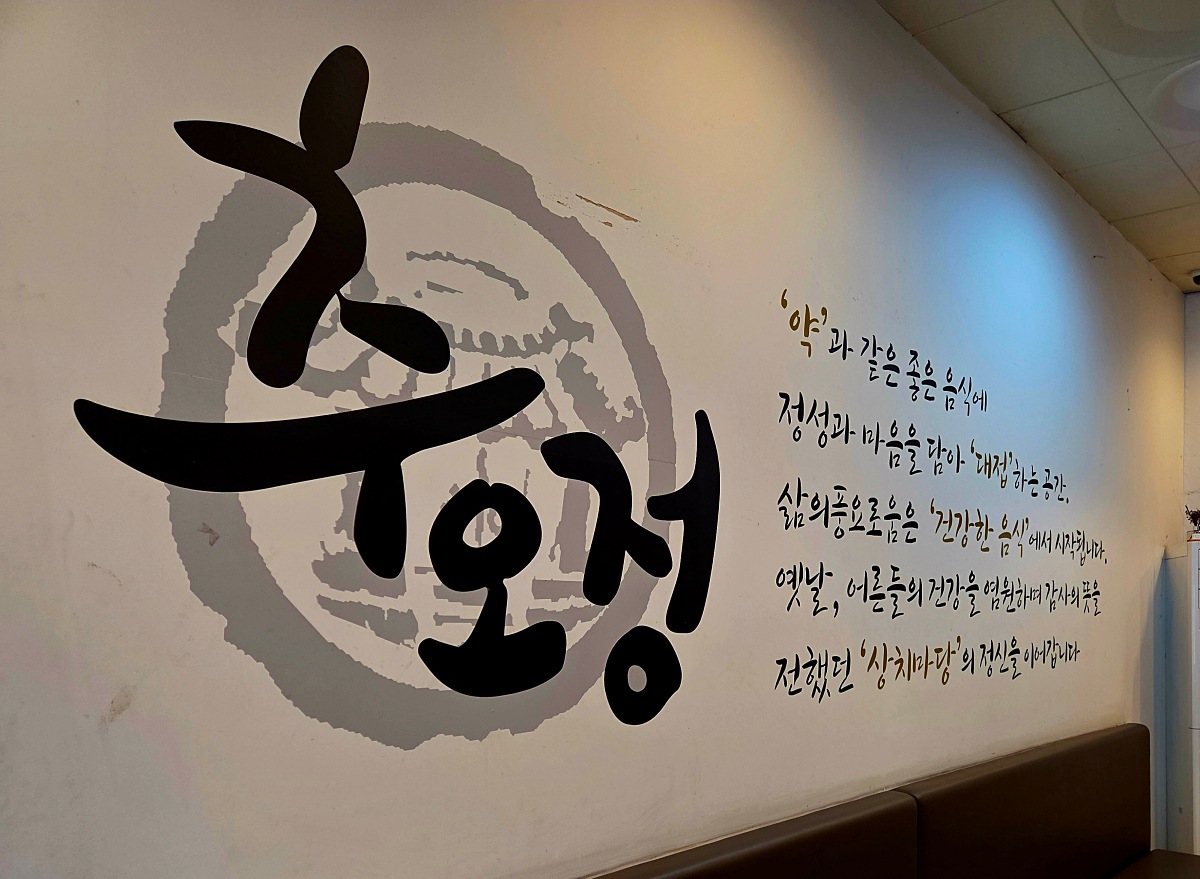 추오정
‘약’과 같은 좋은 음식에
정성과 마음을 담아 ‘대접’하는 공간.
삶의 풍요로움은 ‘건강한 음식’에서 시작됩니다.
옛날, 어른들의 건강을 염원하며 감사의 뜻을
전했던 ‘상치마당’의 정신을 이어갑니다